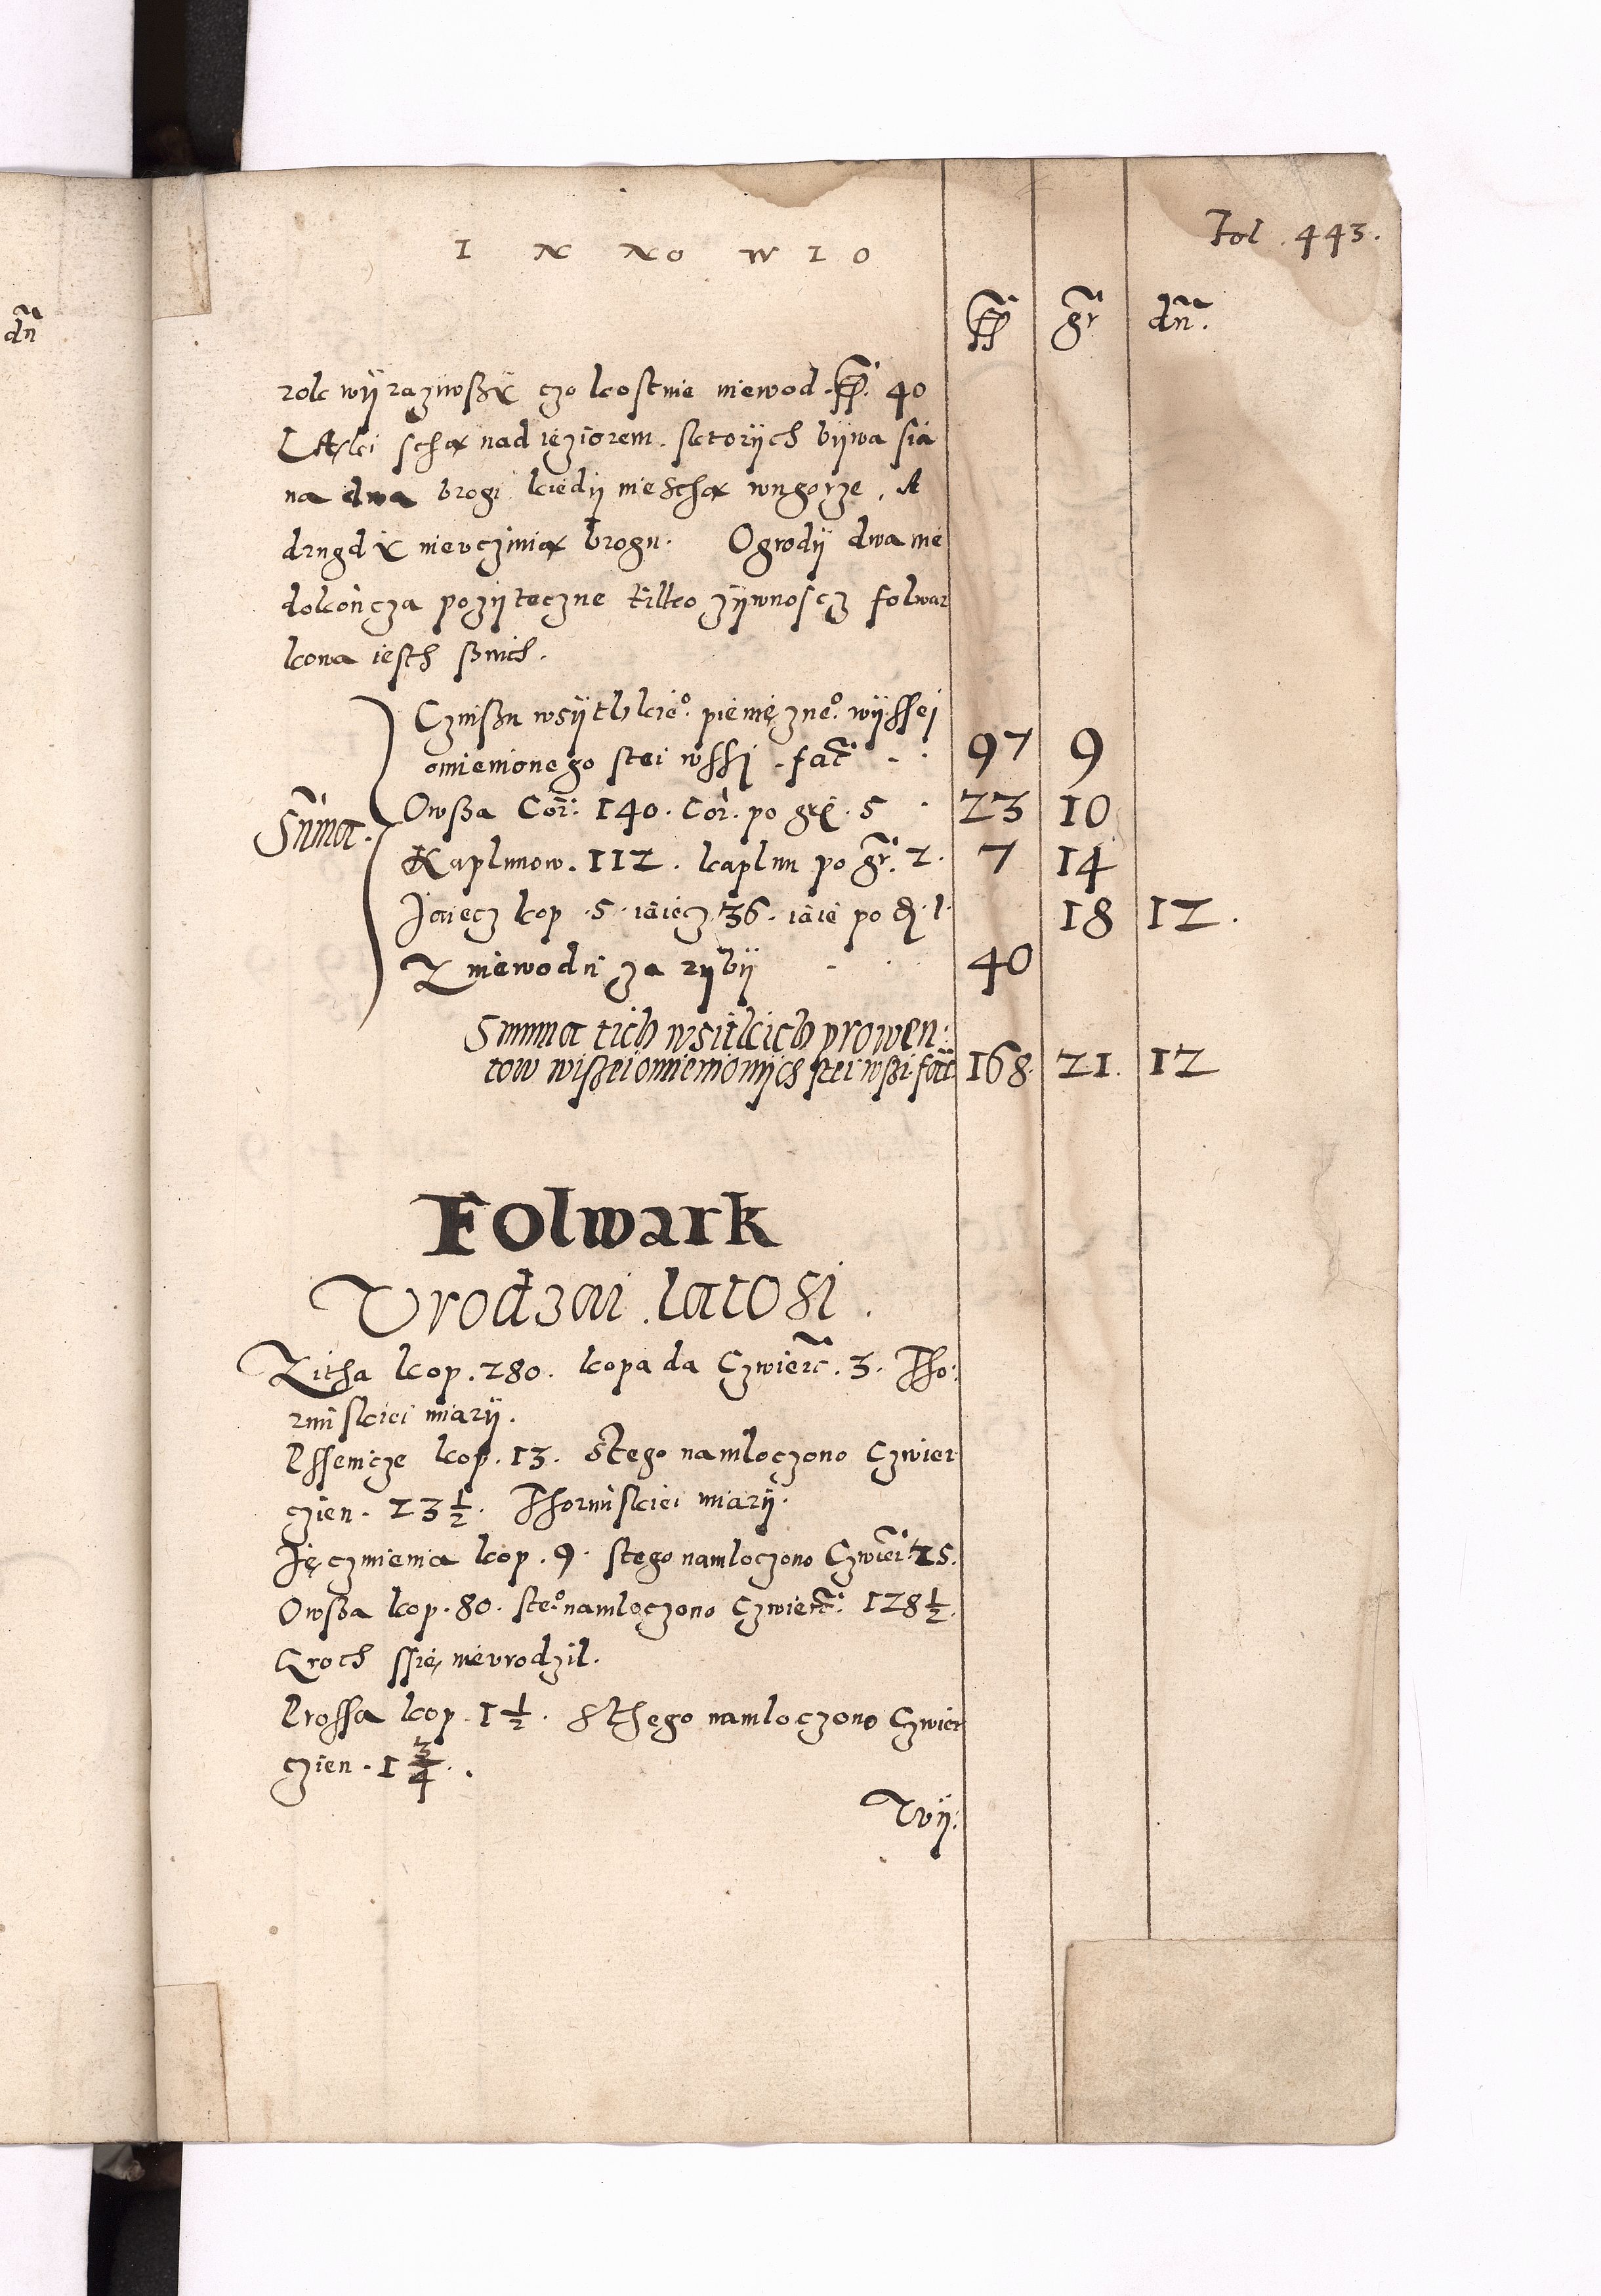 Fol. 443.
I N NO W I O
fl. gr dn.
rok wÿrazuwßÿ czo kostuie niewod. fl. 40
Łąki są nad ięziorem. sktorÿch bÿwa sia
na dwa brogi kiedÿ nie są wngorze, A
drugdÿ nieuczinią brogu. Ogrodÿ dwa nie
dokończa pozÿteczne tilko zÿwnoscz folwar
kowa iesth ßnich.
Czinßu wsÿtkkieo. pieniężneo. wÿssei
omienionego stei wssi. fact 97 9
Suma.
Owßa Cor: 140. Cor. po gr. 5 23 10
Kaplunow. 112. kaplun po gr. 2. 7 14
Jaiecz kop. 5. iaiecz 36. iaie po d. 1. 18 12.
Z niewodu za rÿbÿ 40
Summa tich wsitkich prowen:
tow wißei omienionÿch stei wßi fact 168. 21. 12
Folwark
Vrodzai latosi.
Zitha kop. 280. kopa da Czwierc. 3. Tho:
runskiei miarÿ.
Pssenicze kop. 13. Stego namloczono Czwier
czien. 23 1/2. Thorunskiei miarÿ.
Jęczmienia kop. 9. stego namloczono Czwier. 25.
Owßa kop. 80. steo. namloczono Czwierc. 128 1/2.
Groch ssię nieurodzil.
Prossa kop. 1 1/2. Sthego namloczono Czwier
czien. 1 3/4.
Tvÿ:
dn